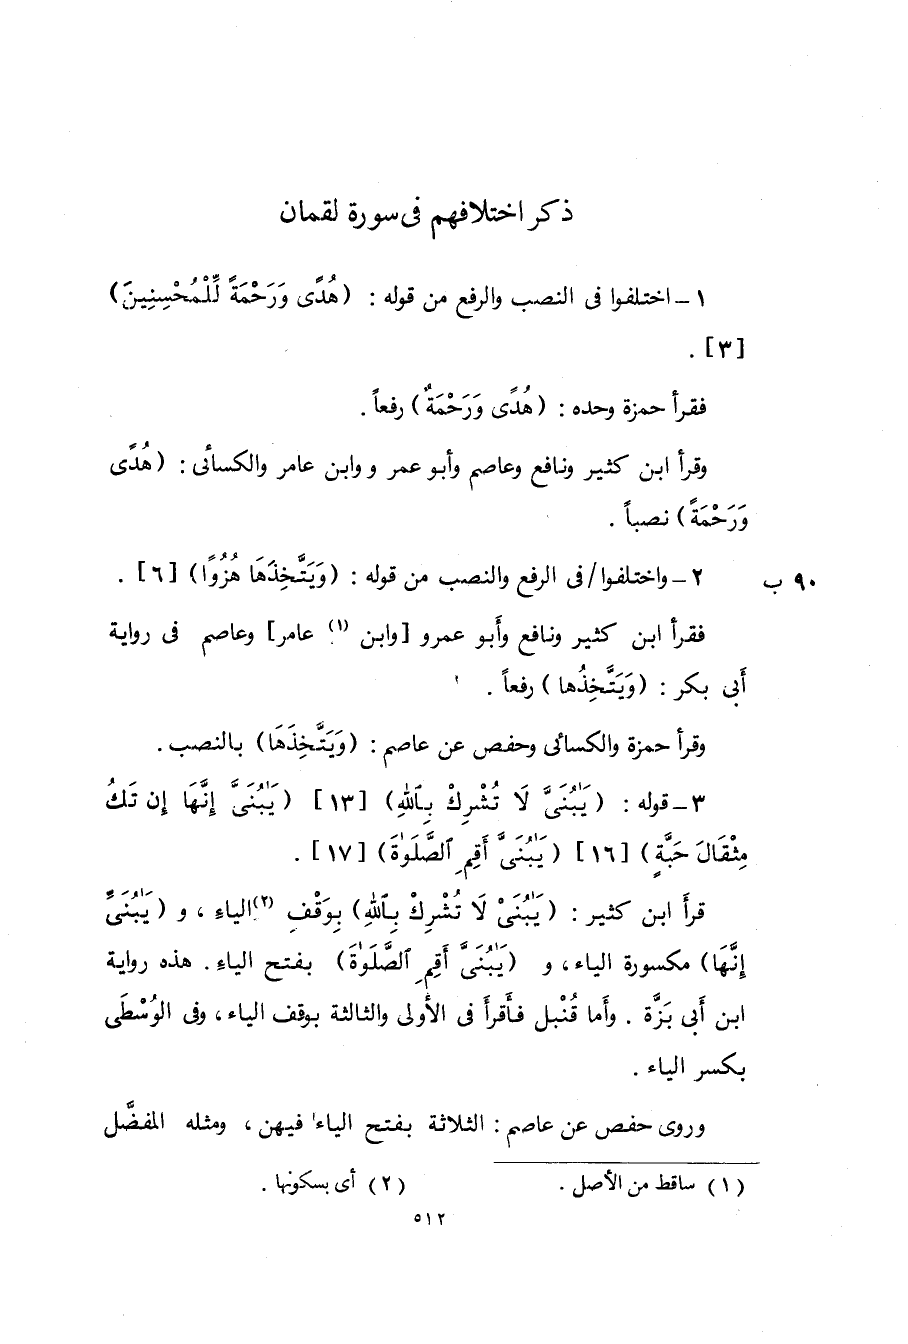 ذكر اختلافهم فى سورة لقمان
١ - اختلفوا فى النصب والرفع من قوله : ( هُدًى وَرَحْمَةً لِّلْمُحْسِنِينَ )
[ ٣ ] .
فقرأ حمزة وحده : ( هُدًى وَرَحْمَةٌ ) رفعاً .
وقرأ ابن كثير ونافع وعاصم وأبو عمر و وابن عامر والكسائى : ( هُدًى
وَرَحْمَةً ) نصباً .
٢ - واختلفوا / فى الرفع والنصب من قوله : ( وَيَتَّخِذَهَا هُزُوًا ) [ ٦ ] . ٩٠ ب
فقرأ ابن كثير ونافع وأبو عمرو [ وابن (١) عامر ] وعاصم فى رواية
أبى بكر : ( وَيَتَّخِذُها ) رفعاً .
وقرأ حمزة والكسائى وحفص عن عاصم : ( وَيَتَّخِذَهَا ) بالنصب .
٣ - قوله : ( يَٰبُنَىَّ لَا تُشْرِكْ بِٱللهِ ) [ ١٣ ] ( يَٰبُنَىَّ إِنَّهَا إِن تَكُ
مِثْقَالَ حَبَّةٍ ) [ ١٦ ] ( يَٰبُنَىَّ أَقِمِ ٱلصَّلَوٰةَ ) [ ١٧ ] .
قرأ ابن كثير : ( يَٰبُنَىْ لَا تُشْرِكْ بِٱللهِ ) بِوَقْفِ (٢) الياء ، و ( يَٰبُنَىِّ
إِنَّهَا ) مكسورة الياء ، و ( يَٰبُنَىَّ أَقِمِ ٱلصَّلَوٰةَ ) بفتح الياءِ . هذه رواية
ابن أبى بَزَّة . وأما قُنْبل فأقرأ فى الأولى والثالثة بوقف الياء ، وفى الوُسْطَى
بكسر الياء .
وروى حفص عن عاصم : الثلاثة بفتح الياء فيهن ، ومثله المفضَّل
(١) ساقط من الأصل . (٢) أى بسكونها .
٥١٢